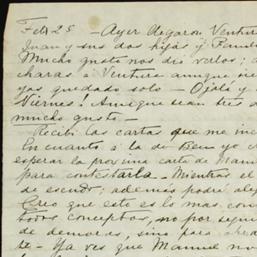 Feb 25 - Ayer llegaron Ventura
Juan y sus dos hijas y Famil
Mucho gusto nos dió verlos;
charas a Ventura aunque
yas quedado solo - Ojalá y
Viernes! Aunque sean tres d
mucho gusto -
Recibí las cartas que me in
En cuanto á la de Beno yo c
esperar la proxima carta de Manu
para contestarla - Mientras el
de escudo; además podré ale
Creo que este es lo mas con
todos conceptos, no por segui
de demoras, sino para
te - Ya ves que Manuel no